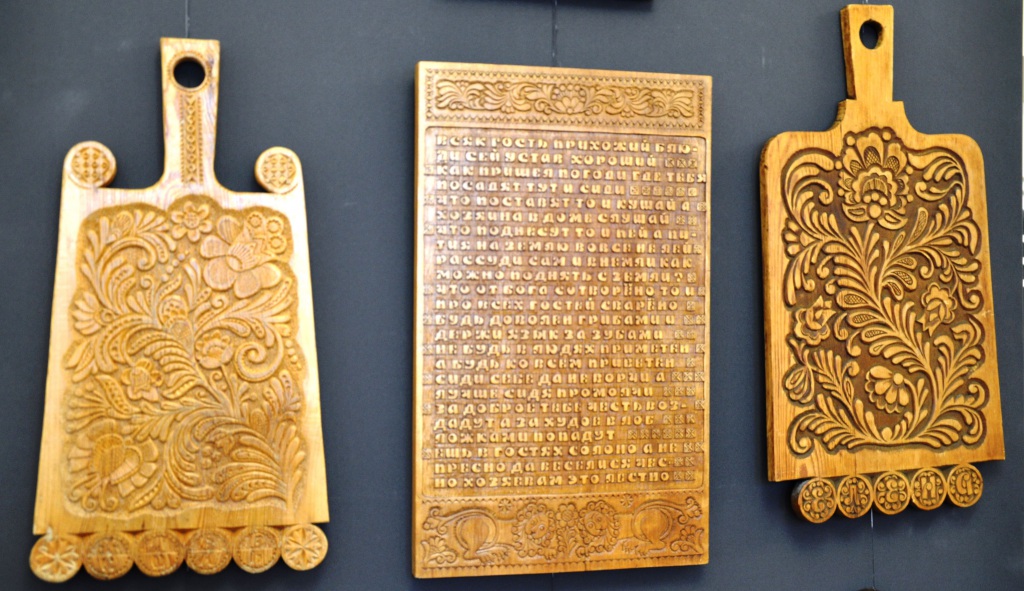 ВСЯК ГОСТЬ ПРИХОЖИЙ БЛЮ-
ДИ СЕЙ УСТАВ ХОРОШИЙ
КАК ПРИШЕЛ ПОГОДИ ГДЕ ТЕБЯ
ПОСАДЯТ ТУТ И СИДИ
ЧТО ПОСТАВЯТ ТО И КУШАЙ А
ХОЗЯИНА В ДОМЕ СЛУШАЙ
ЧТО ПОДНЕСУТ ТО И ПЕЙ А ПИ-
ТИЯ НА ЗЕМЛЮ ВОВСЕ НЕ ЛЕЙ
РАССУДИ САМ И ВНЕМЛИ КАК
МОЖНО ПОДНЯТЬ С ЗЕМЛИ
ЧТО ОТ БОГА СОТВОРЁНО ТО И
ПРО ВСЕХ ГОСТЕЙ СВАРЁНО
БУДЬ ДОВОЛЕН ГРИБАМИ И
ДЕРЖИ ЯЗЫК ЗА ЗУБАМИ
НЕ БУДЬ В ЛЮДЯХ ПРИМЕТЕН
А БУДЬ КО ВСЕМ ПРИВЕТЕН
СИДИ СЕБЕ ДА НЕ ВОРЧИ А
ЛУЧШЕ СИДЯ ПРОМОЛЧИ
ЗА ДОБРО ТЕБЕ ЧЕСТЬ ВОЗ-
ДАДУТ А ЗА ХУДОЕ В ЛОБ
ЛОЖКАМИ ПОПАДУТ
ЕШЬ В ГОСТЯХ СОЛОНО А НЕ
ПРЕСНО ДА ВЕСЕЛИСЯ ЧЕСТНО
НО ХОЗЯЕВАМ ЭТО ЛЕСТНО